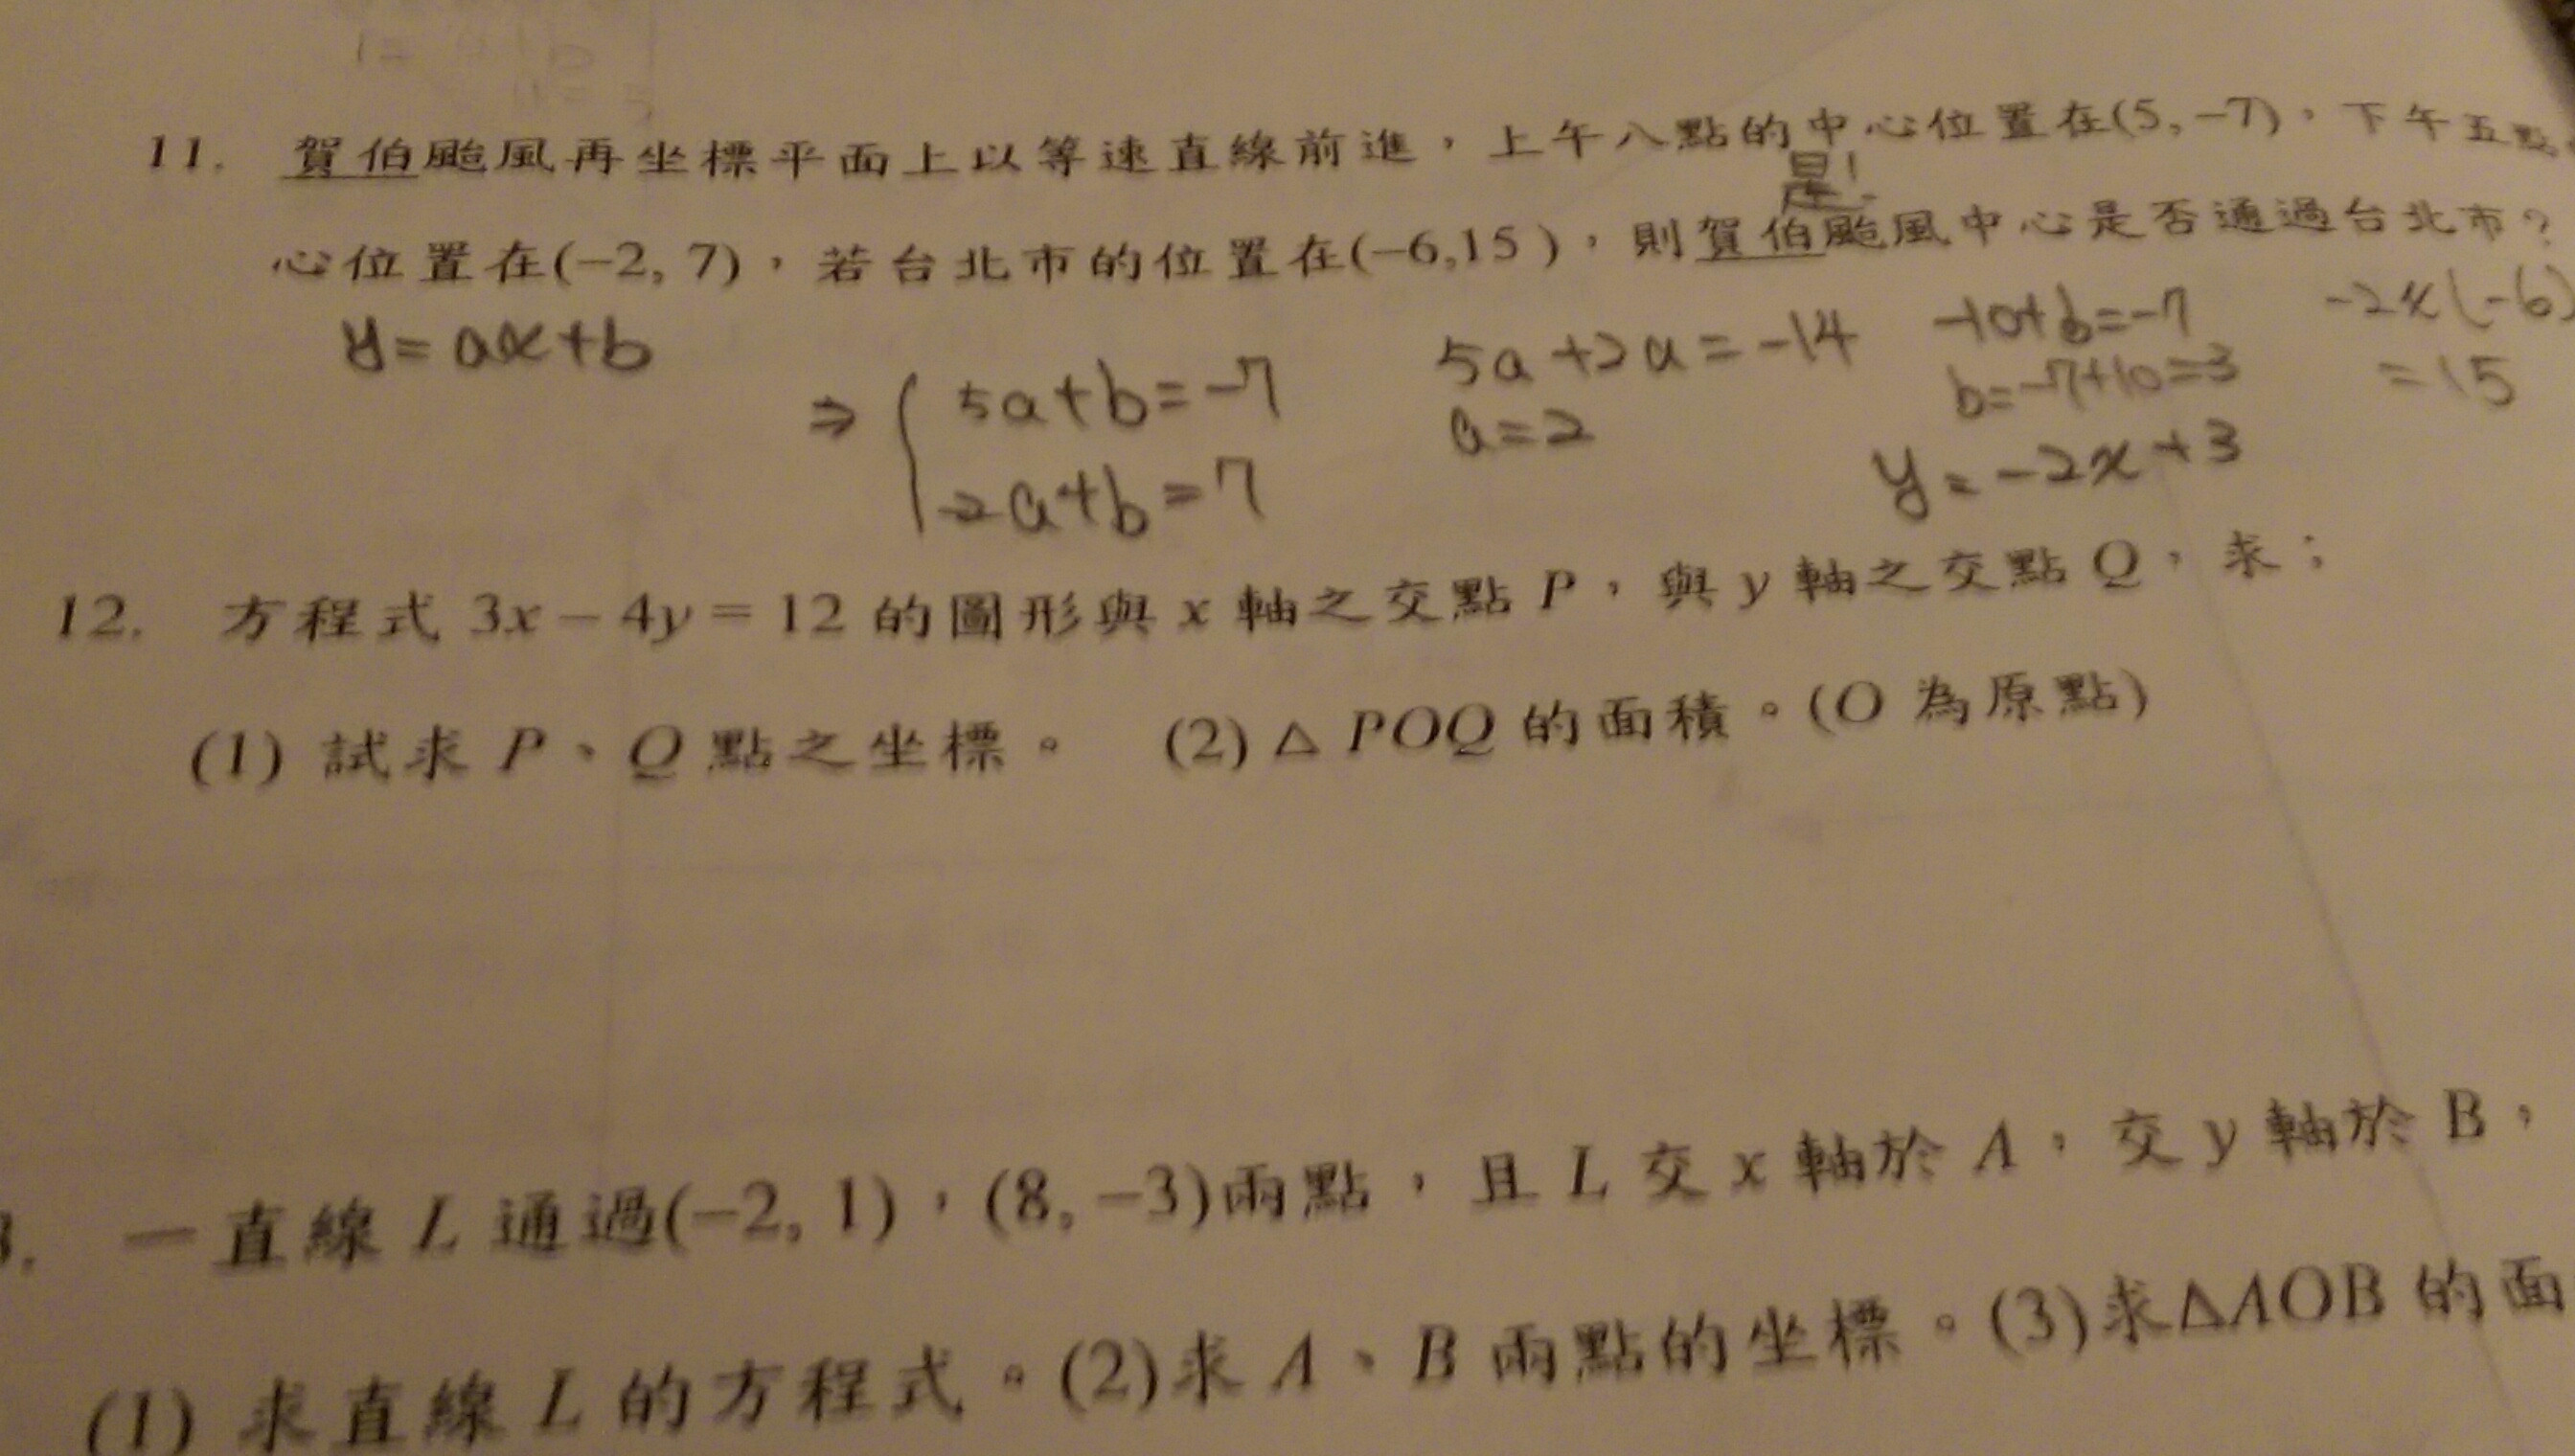 11. 賀伯颱風再坐標平面上以等速直線前進，上午八點的中心位置在(5,−7)，下午五點
是!
心位置在(−2, 7)，若台北市的位置在(−6,15)，則賀伯颱風中心是否通過台北市？
y=ax+b
⇒ { 5a+b=-7
-2a+b=7
5a+2a=-14
a=2
-10+b=-7
b=-7+10=3
y=-2x+3
-2x(-6)
=15
12. 方程式 3x − 4y = 12 的圖形與 x 軸之交點 P，與 y 軸之交點 Q，求；
(1) 試求 P、Q 點之坐標。 (2) △ POQ 的面積。(O 為原點)
3. 一直線 L 通過(−2, 1)，(8, −3)兩點，且 L 交 x 軸於 A，交 y 軸於 B，
(1) 求直線 L 的方程式。(2)求 A、B 兩點的坐標。(3)求△AOB 的面